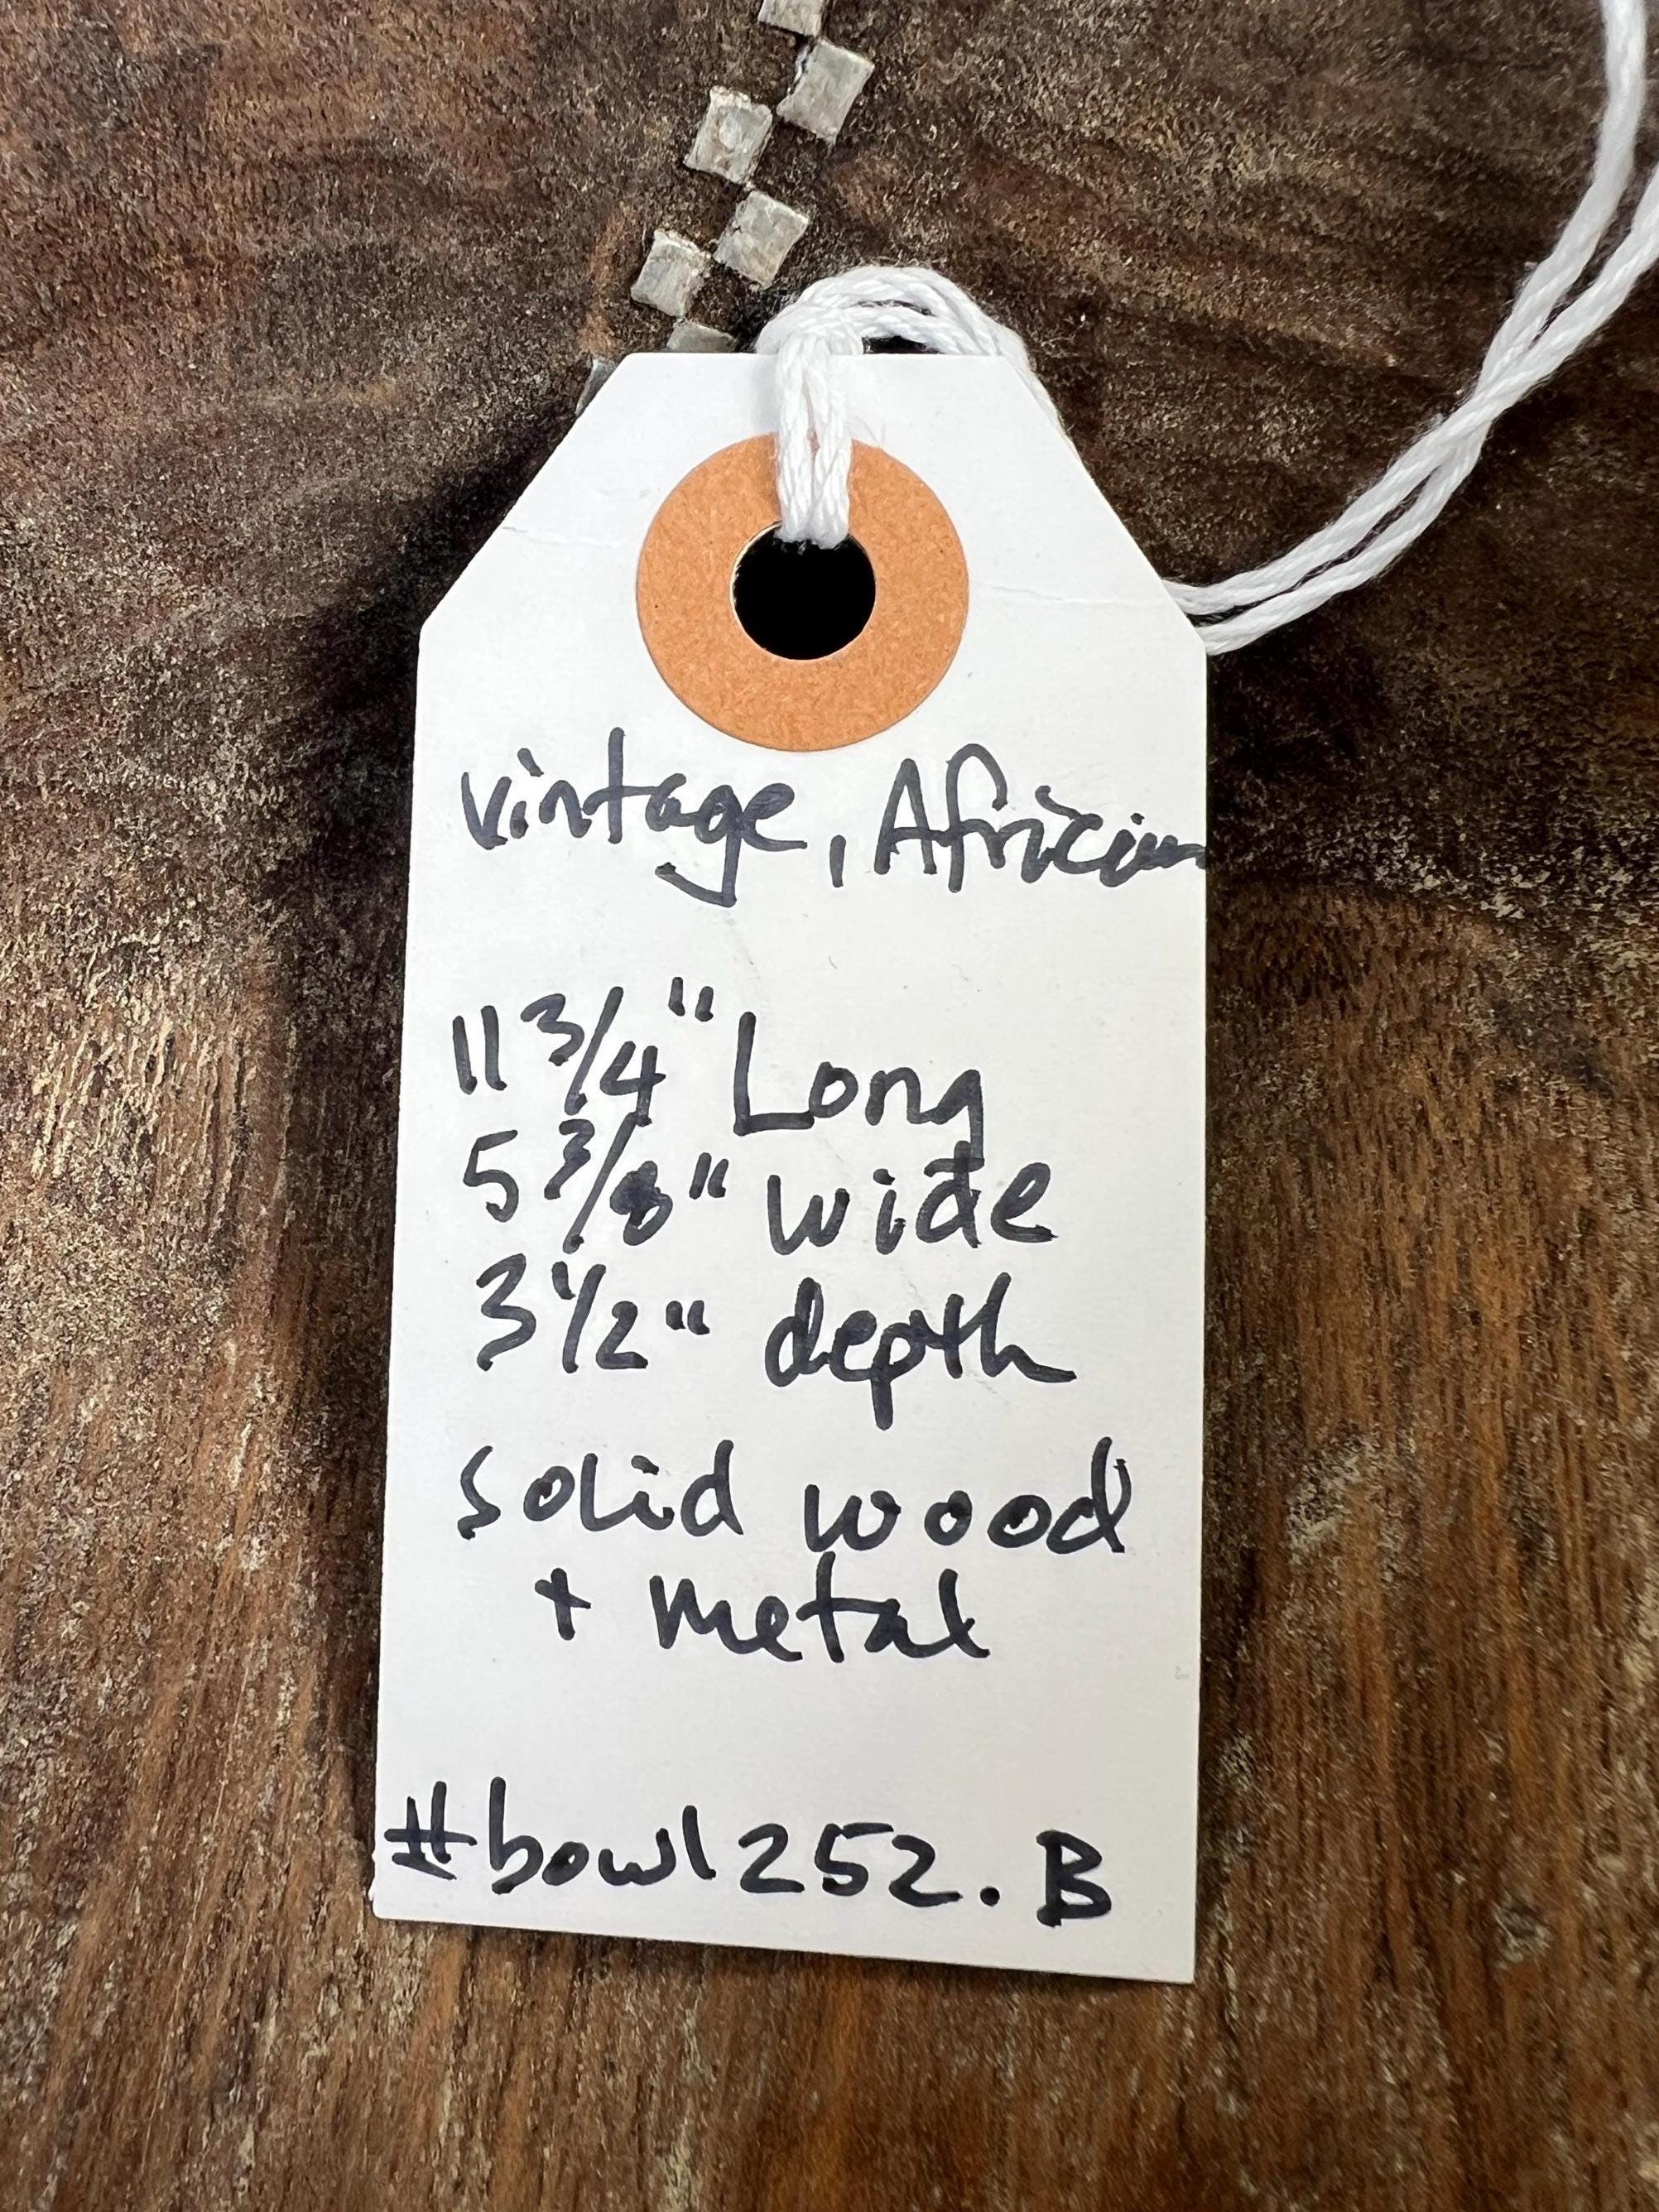 vintage, African
11 3/4" Long
5 3/8" wide
3 1/2" depth
solid wood
+ metal
#bowl252.B